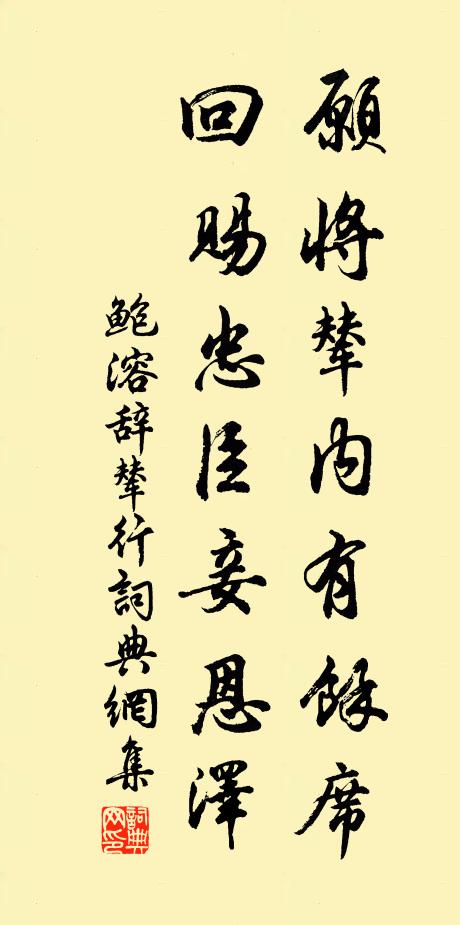 願將輦内有餘席
回賜忠臣妾恩澤
鮑溶辭輦行詞典網集
詞典网印